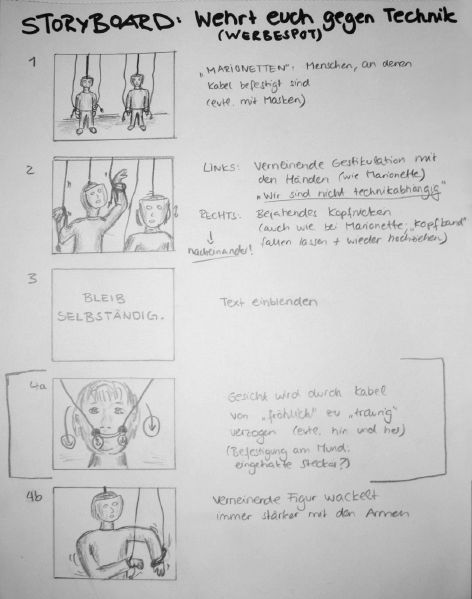 STORYBOARD: Wehrt euch gegen Technik
(WERBESPOT)
1
„MARIONETTEN": Menschen, an denen
Kabel befestigt sind
(evtl. mit Masken)
2
LINKS: Verneinende Gestikulation mit
den Händen (wie Marionette)
"Wir sind nicht technikabhängig"
RECHTS: Bejahendes Kopfnicken
(auch wie bei Marionette, „Kopfband"
fallen lassen + wieder hochziehen)
nacheinander!
3
BLEIB
SELBSTÄNDIG.
Text einblenden
4a
Gesicht wird durch Kabel
von „fröhlich" zu „traurig"
verzogen (evtl. hin und her)
(Befestigung am Mund:
eingehakte Stecker?)
4b
Verneinende Figur wackelt
immer stärker mit den Armen